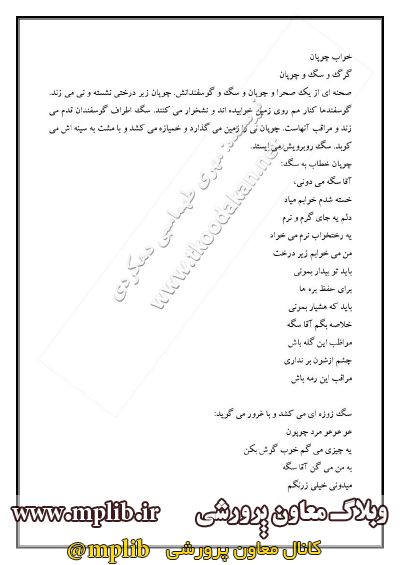 خواب چوپان
گرگ و سگ و چوپان
صحنه ای از یک صحرا و چوپان و سگ و گوسفندانش. چوپان زیر درختی نشسته و نی می زند.
گوسفندها کنار هم روی زمین خوابیده اند و نشخوار می کنند. سگ اطراف گوسفندان قدم می
زند و مراقب آنهاست. چوپان نی را زمین می گذارد و خمیازه می کشد و با مشت به سینه اش می
کوبد. سگ روبرویش می ایستد.
چوپان خطاب به سگ:
آقا سگه می دونی،
خسته شدم خوابم میاد
دلم یه جای گرم و نرم
یه رختخواب نرم می خواد
من می خوابم زیر درخت
باید تو بیدار بمونی
برای حفظ بره ها
باید که هشیار بمونی
خلاصه بگم آقا سگه
مواظب این گله باش
چشم ازشون بر نداری
مراقب این رمه باش
سگ زوزه ای می کشد و با غرور می گوید:
عو عوعو مرد چوپون
یه چیزی می گم خوب گوش بکن
به من می گن آقا سگه
میدونی خیلی زرنگم
نویسنده: مهری طهماسبی دهکردی
www.tkoodakan.ne
وبلاگ معاون پرورشی www.mplib.ir
کانال معاون پرورشی @mplib